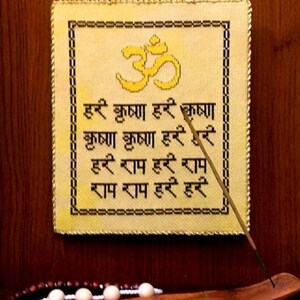 ॐ
हरे कृष्ण हरे कृष्ण
कृष्ण कृष्ण हरे हरे
हरे राम हरे राम
राम राम हरे हरे